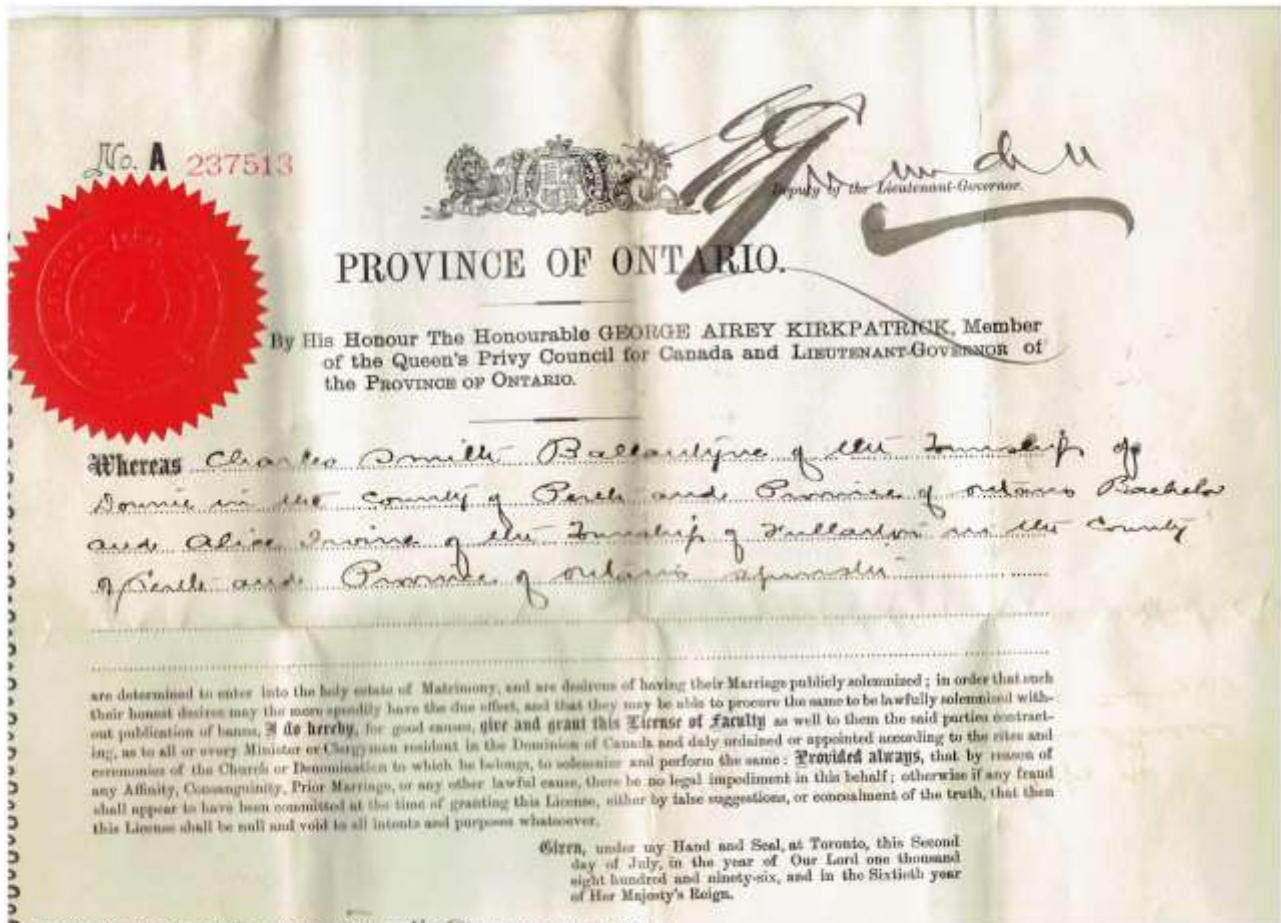 No. A 237513
Deputy of the Lieutenant-Governor.
PROVINCE OF ONTARIO.
By His Honour The Honourable GEORGE AIREY KIRKPATRICK, Member
of the Queen's Privy Council for Canada and LIEUTENANT-GOVERNOR of
the PROVINCE OF ONTARIO.
Whereas Charles Smith Ballantyne of the Township of
Downie in the County of Perth and Province of Ontario Bachelor
and Alice Irvine of the Township of Fullarton in the County
of Perth and Province of Ontario Spinster
are determined to enter into the holy estate of Matrimony, and are desirous of having their Marriage publicly solemnized; in order that such
their honest desires may the more speedily have the due effect, and that they may be able to procure the same to be lawfully solemnized with-
out publication of banns, I do hereby, for good causes, give and grant this License of Faculty as well to them the said parties contract-
ing, as to all or every Minister or Clergyman resident in the Dominion of Canada and duly ordained or appointed according to the rites and
ceremonies of the Church or Denomination to which he belongs, to solemnize and perform the same: Provided always, that by reason of
any Affinity, Consanguinity, Prior Marriage, or any other lawful cause, there be no legal impediment in this behalf; otherwise if any fraud
shall appear to have been committed at the time of granting this License, either by false suggestions, or concealment of the truth, that then
this License shall be null and void to all intents and purposes whatsoever.
Given, under my Hand and Seal, at Toronto, this Second
day of July, in the year of Our Lord one thousand
eight hundred and ninety-six, and in the Sixtieth year
of Her Majesty's Reign.